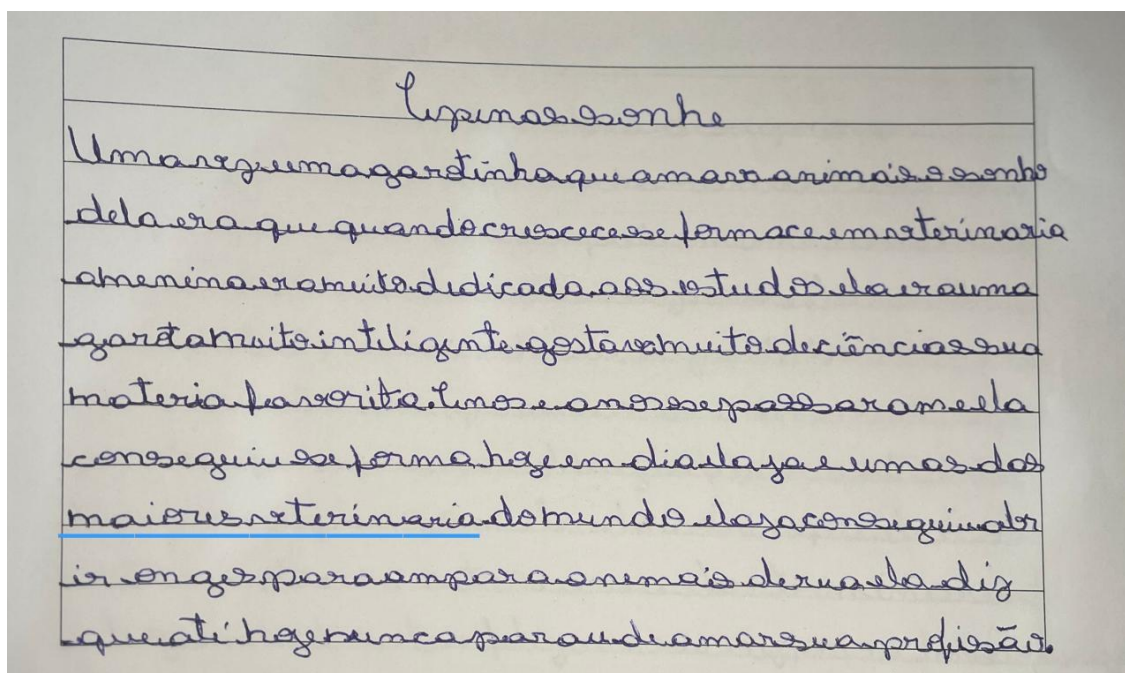 Apenas o sonho
Uma vez uma garotinha que amava animais o sonho
dela era que quando crescece se formace em veterinaria
a menina era muito dedicada aos estudos ela era uma
garota muito inteligente gostava muito de ciências sua
materia favorita. Anos e anos se passaram e ela
conseguiu se forma hoje em dia ela ja e umas das
maiores veterinaria do mundo ela ja conseguiu abr
ir onges para ampara animais de rua ela diz
que até hoje nunca parou de amar sua profissão.